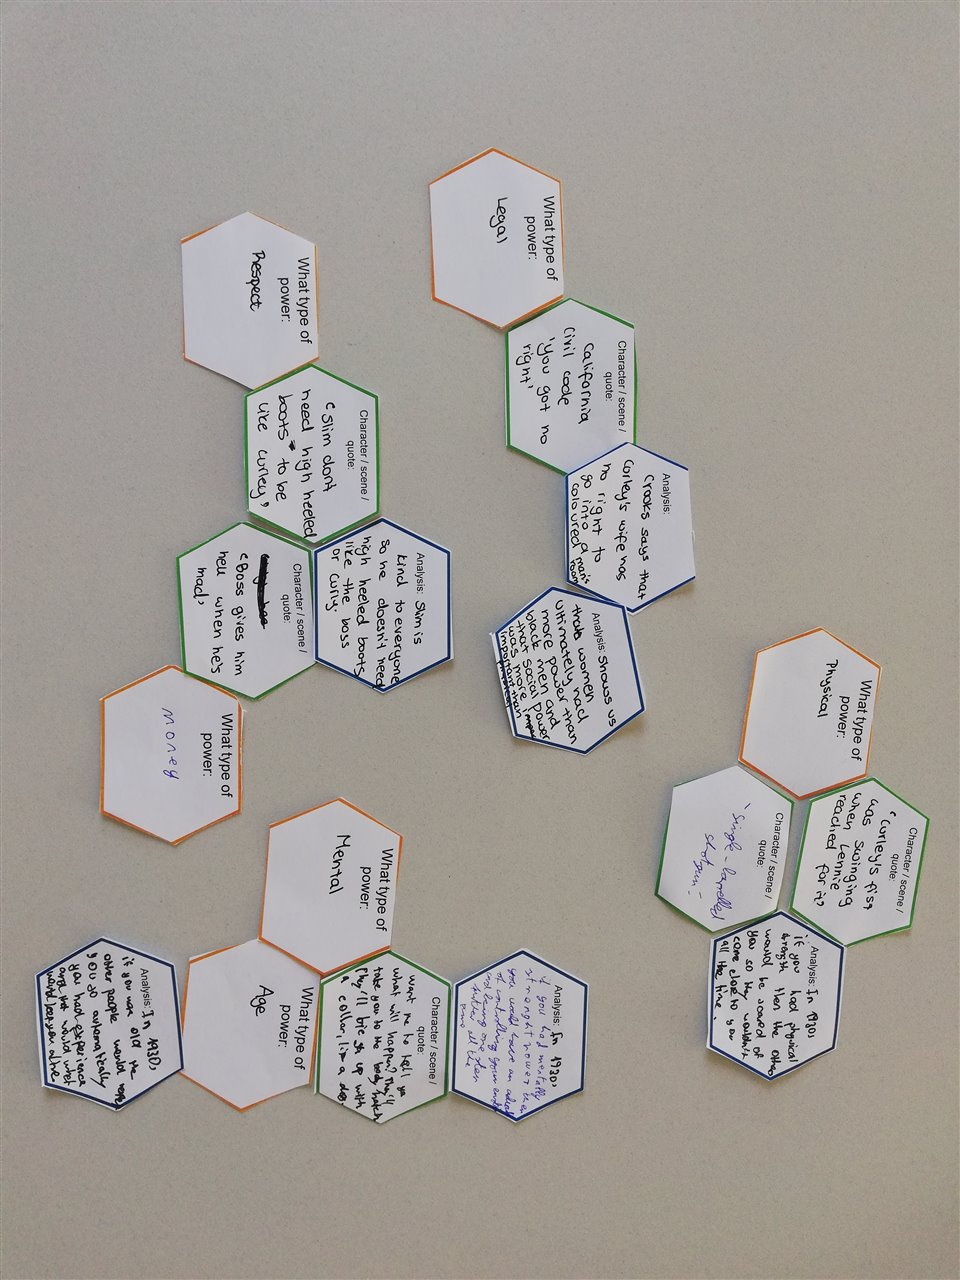 What type of
power:
Legal
Character / scene /
quote:
California
Civil code
'You got no
right'
Analysis:
Crooks says that
Curley's wife has
no right to
go into a
coloured man's
room
Analysis: Shows us
that women
ultimately had
more power than
black men and
that social power
was more
important than
physical
What type of
power:
Respect
Character / scene /
quote:
'Slim dont
need high heeled
boots to be
like curley'
Analysis: Slim is
kind to everyone
so he doesn't need
high heeled boots
like the boss
or curly.
Character / scene /
quote:
'Boss gives him
hell when he's
mad'
What type of
power:
money
What type of
power:
Physical
Character / scene /
quote:
'Curley's fist
was swinging
when Lennie
reached for it'
Character / scene /
quote:
'single-barrelled
shotgun'
Analysis: In 1930s
if you had physical
strength then the other
would be scared of
you so they wouldn't
come close to you
all the time.
What type of
power:
Mental
Character / scene /
quote:
want me to tell ya
what will happen? They'll
take you to the booby hatch
They'll tie ya up with
a collar, like a dog.
Analysis: In 1930s
if you had mentally
strenght power then
you would have an
of controlling your
and being one step
all the
time
What type of
power:
Age
Analysis: In 1930s
if you was old the
other people would
you so automatically
you had experience
and that would
would keep you alive.